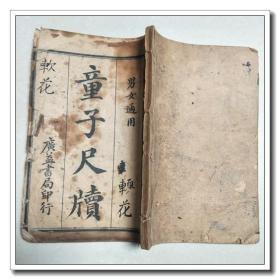 男女適用
童子尺牘
廣益書局印行
軟花
花